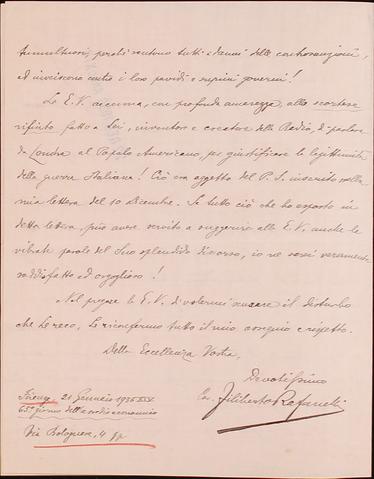 tumultuosi, perché sentono tutti i danni delle controsanzioni,
ed inveiscono contro i loro pavidi e supini governi!
Le E. V. accenna, con profonda amarezza, allo scortese
rifiuto fatto a Lei, inventore e creatore della Radio, di parlare
da Londra al Popolo Americano, per giustificare la legittimità
della guerra Italiana! Ciò era oggetto del P. S. inserito nella
mia lettera del 10 Dicembre. Se tutto ciò che ho esposto in
detta lettera, può avere servito a suggerire alla E. V. anche le
vibrate parole del Suo splendido discorso, io ne sarei veramente
soddisfatto ed orgoglioso!
Nel pregare la E. V. di volermi scusare il disturbo
che Le reco, Le riconfermo tutto il mio ossequio e rispetto.
Della Eccellenza Vostra,
Devotissimo
Filiberto Rafanelli
Firenze, 21 Gennaio 1936 XIV
65° giorno dell'assedio economico
Via Bolognese, 4